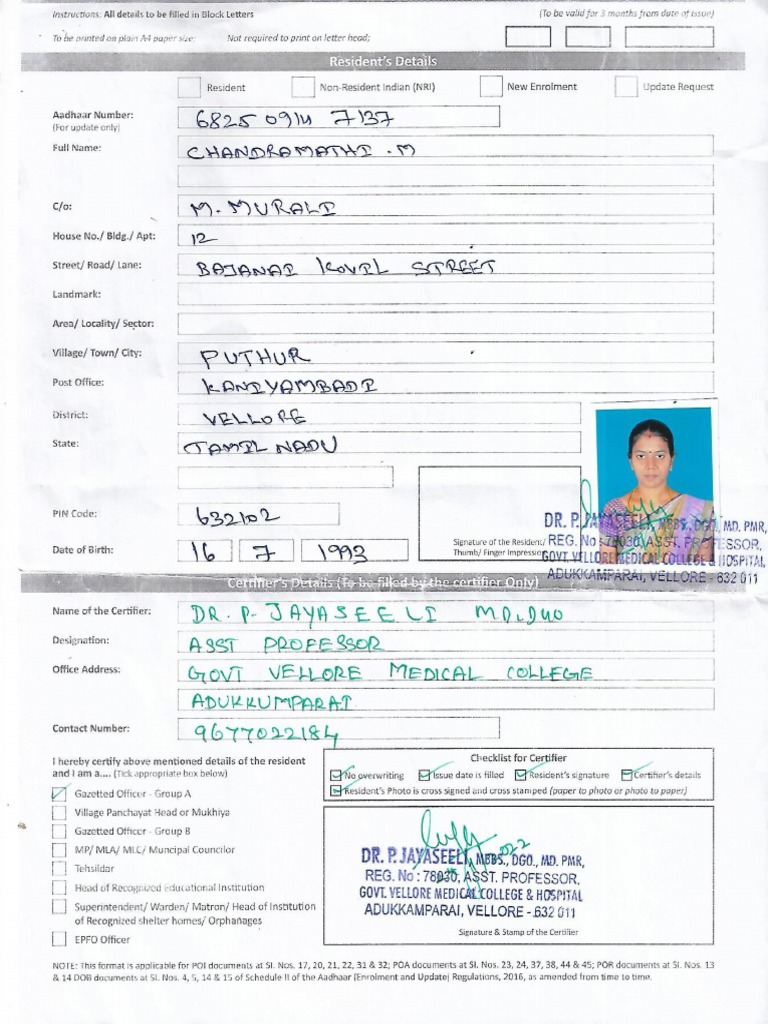 Instructions: All details to be filled in Block Letters (To be valid for 3 months from date of issue)
To be printed on plain A4 paper size; Not required to print on letter head;
Resident's Details
Resident Non-Resident Indian (NRI) New Enrolment Update Request
Aadhaar Number: 6825 0914 7137
(For update only)
Full Name: CHANDRAMATHI .M
C/o: M. MURALI
House No./ Bldg./ Apt: 12
Street/ Road/ Lane: BAJANAI KOVIL STREET
Landmark:
Area/ Locality/ Sector:
Village/ Town/ City: PUTHUR
Post Office: KANIYAMBADI
District: VELLORE
State: TAMIL NADU
PIN Code: 632102
Signature of the Resident/
Thumb/ Finger Impression
DR. P. JAYASEELI, MBBS., DGO., MD. PMR,
REG. No : 78030, ASST. PROFESSOR,
GOVT. VELLORE MEDICAL COLLEGE & HOSPITAL
ADUKKAMPARAI, VELLORE - 632 011
Date of Birth: 16 7 1993
Certifier's Details (To be filled by the certifier Only)
Name of the Certifier: DR. P. JAYASEELI
Designation: ASST PROFESSOR
Office Address: GOVT VELLORE MEDICAL COLLEGE
ADUKKUMPARAI
Contact Number: 9677022184
I hereby certify above mentioned details of the resident
and I am a.... (Tick appropriate box below)
Gazetted Officer - Group A
Village Panchayat Head or Mukhiya
Gazetted Officer - Group B
MP/ MLA/ MLC/ Muncipal Councilor
Tehsildar
Head of Recognized educational Institution
Superintendent/ Warden/ Matron/ Head of Institution
of Recognized shelter homes/ Orphanages
EPFO Officer
Checklist for Certifier
No overwriting Issue date is filled Resident's signature Certifier's details
Resident's Photo is cross signed and cross stamped (paper to photo or photo to paper)
DR. P. JAYASEELI, MBBS., DGO., MD. PMR,
REG. No : 78030, ASST. PROFESSOR,
GOVT. VELLORE MEDICAL COLLEGE & HOSPITAL
ADUKKAMPARAI, VELLORE - 632 011
Signature & Stamp of the Certifier
NOTE: This format is applicable for POI documents at Sl. Nos. 17, 20, 21, 22, 31 & 32; POA documents at Sl. Nos. 23, 24, 37, 38, 44 & 45; POR documents at Sl. Nos. 13
& 14 DOB documents at Sl. Nos. 4, 5, 14 & 15 of Schedule II of the Aadhaar (Enrolment and Update) Regulations, 2016, as amended from time to time.